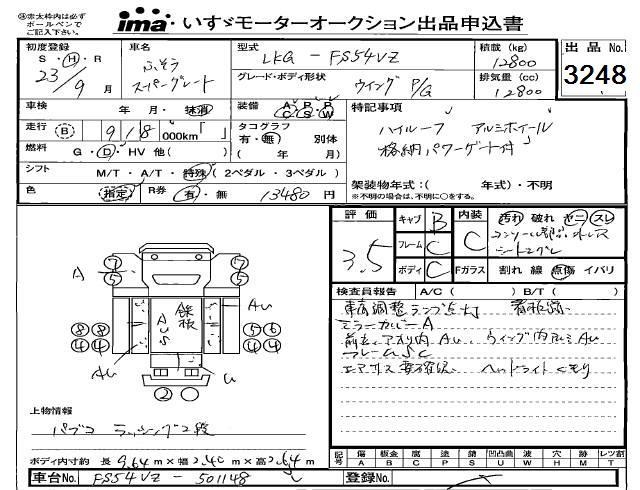 ※赤太枠内は必ず
ボールペンで
ご記入下さい。
ima いすゞモーターオークション出品申込書
初度登録 車名 型式 積載 (kg) 出品No.
S・H・R ふそう LKG - FS54VZ 12800
23/9月 スーパーグレート グレード・ボディ形状 ウイング P/G 排気量 (cc) 12800 3248
車検 年 月・抹消 装備 A・P・P C・S・W 特記事項
走行 B 918 000km「 」 タコグラフ 有・無 別体 ハイルーフ アルミホイール
燃料 G・D・HV 他( ) ( 年 月) 格納パワーゲート付
シフト M/T・A/T・特殊 (2ペダル・3ペダル) 架装物年式:( 年式)・不明
色 指定 R券 有・無 13480円 ※不明の場合は、不明に○をする。
評価 3.5 キャブ B 内装 C 汚れ 破れ ヤニ スレ
フレーム C
シートスレ
ボディ C Fガラス 割れ 線 点傷 イバリ
検査員報告 A/C ( ) B/T ( )
車高調整ランプ点灯 看板跡
ミラーカバーA
前左アオリ内 Au ウイング内アルミ Au
フレームSC
エアサス要確認 ヘッドライトくもり
⑦ ⑦
A ⑤ ⑤
AUS 鉄板 Au
⑧⑧ ⑤⑥
④④ ④④
Au U
②
上物情報
パブコ ラッシング2段
ボディ内寸約 長 9.64m×幅 2.40m×高 2.64m
記号 傷A 板金B 腐C 塗P 錆S 凹凸曲U 波W 穴H 跡M レツ割T
車台No. FS54VZ - 501148 登録No.